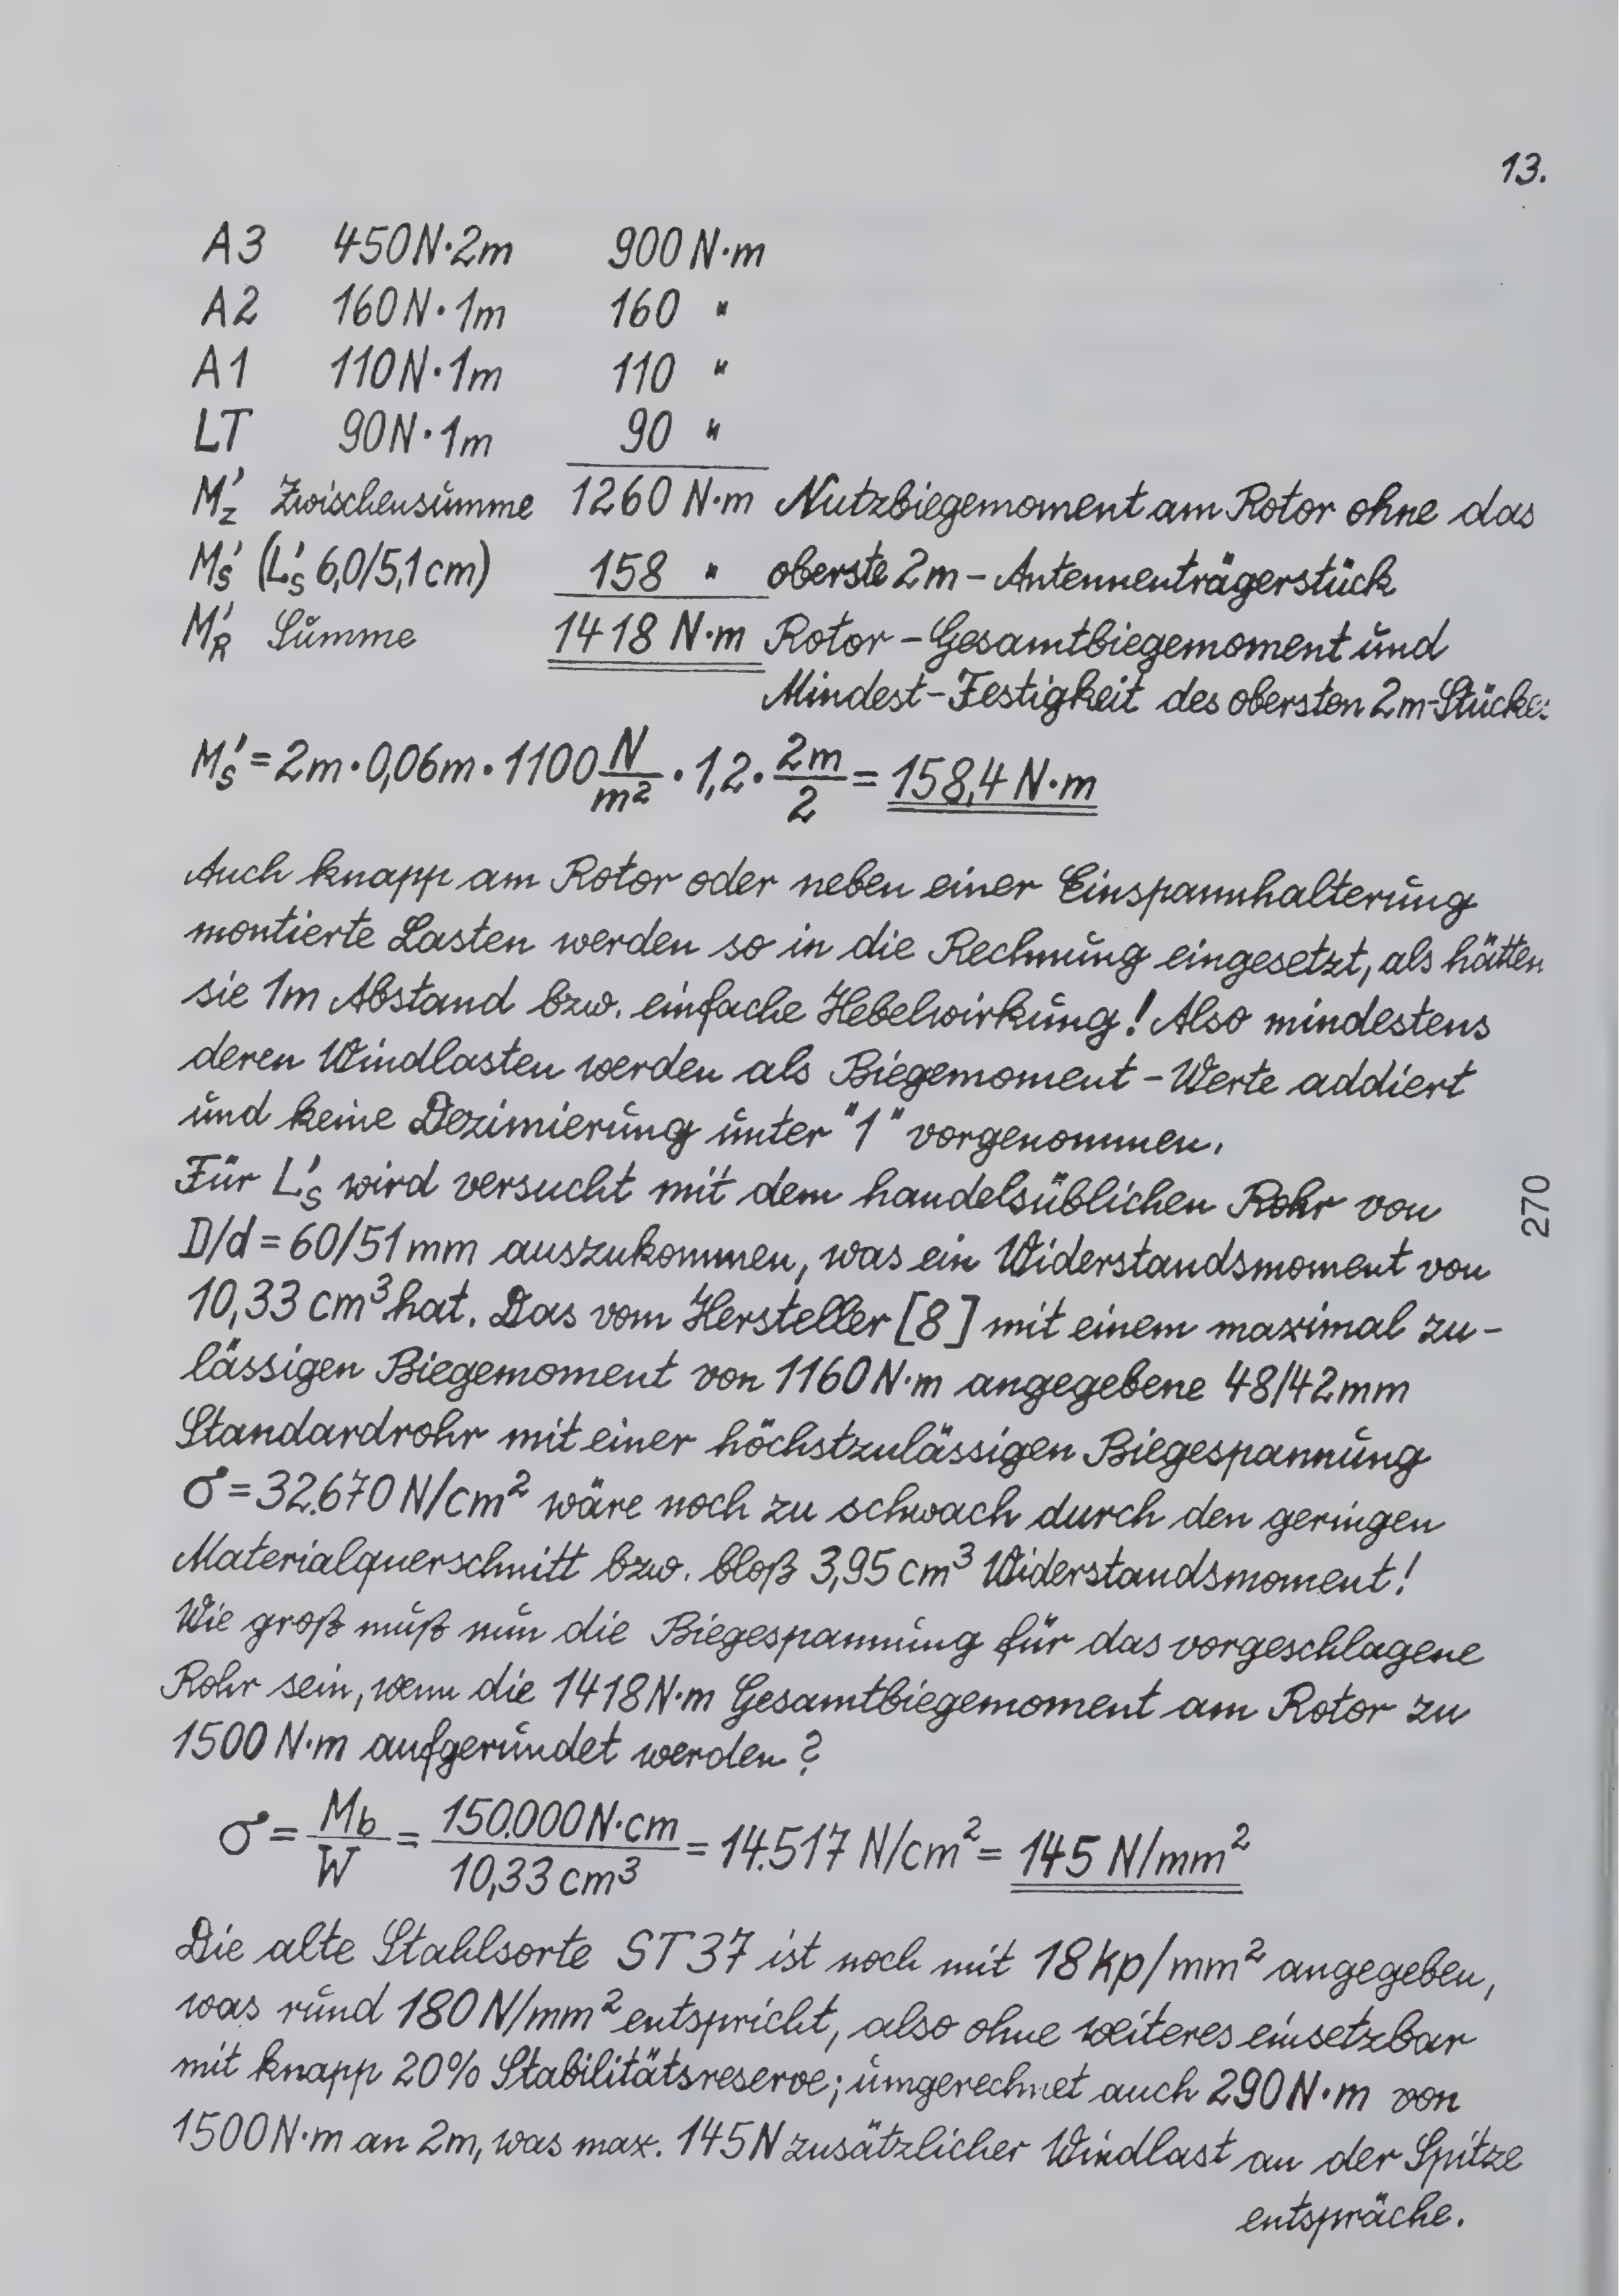 13.
A3 450N·2m 900 N·m
A2 160N·1m 160 "
A1 110N·1m 110 "
LT 90N·1m 90 "
M'z Zwischensumme 1260 N·m Nutzbiegemoment am Rotor ohne das
M's (L's 6,0/5,1cm) 158 " oberste 2m-Antennenträgerstück
M'R Summe 1418 N·m Rotor-Gesamtbiegemoment und
Mindest-Festigkeit des obersten 2m-Stückes
M's = 2m·0,06m·1100 N/m² · 1,2 · 2m/2 = 158,4 N·m
Auch knapp am Rotor oder neben einer Einspannhalterung
montierte Lasten werden so in die Rechnung eingesetzt, als hätten
sie 1m Abstand bzw. einfache Hebelwirkung! Also mindestens
deren Windlasten werden als Biegemoment-Werte addiert
und keine Dezimierung unter "1" vorgenommen.
Für L's wird versucht mit dem handelsüblichen Rohr von
D/d = 60/51mm auszukommen, was ein Widerstandsmoment von
270
10,33 cm³ hat. Das vom Hersteller [8] mit einem maximal zu-
lässigen Biegemoment von 1160N·m angegebene 48/42mm
Standardrohr mit einer höchstzulässigen Biegespannung
σ = 32.670 N/cm² wäre noch zu schwach durch den geringen
Materialquerschnitt bzw. bloß 3,95 cm³ Widerstandsmoment!
Wie groß muß nun die Biegespannung für das vorgeschlagene
Rohr sein, wenn die 1418N·m Gesamtbiegemoment am Rotor zu
1500 N·m aufgerundet werden?
σ = Mb/W = 150.000N·cm/10,33 cm³ = 14.517 N/cm² = 145 N/mm²
Die alte Stahlsorte ST 37 ist noch mit 18kp/mm² angegeben,
was rund 180 N/mm² entspricht, also ohne weiteres einsetzbar
mit knapp 20% Stabilitätsreserve; umgerechnet auch 290N·m von
1500N·m an 2m, was max. 145N zusätzlicher Windlast an der Spitze
entspräche.